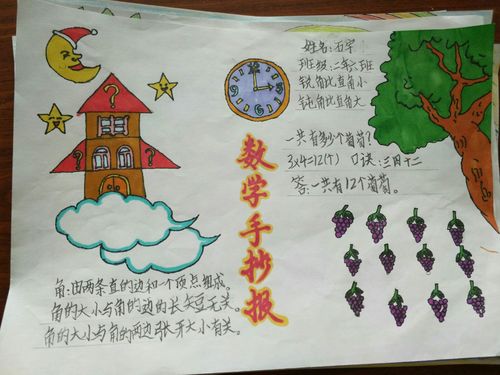 姓名:石宇
班级:二年六班
锐角比直角小
钝角比直角大
一共有多少个葡萄?
3×4=12(个) 口诀:三四十二
答:一共有12个葡萄。
数学手抄报
角:由两条直的边和一个顶点组成。
角的大小与角的边的长短无关。
角的大小与角的两边张开大小有关。
? ? ?